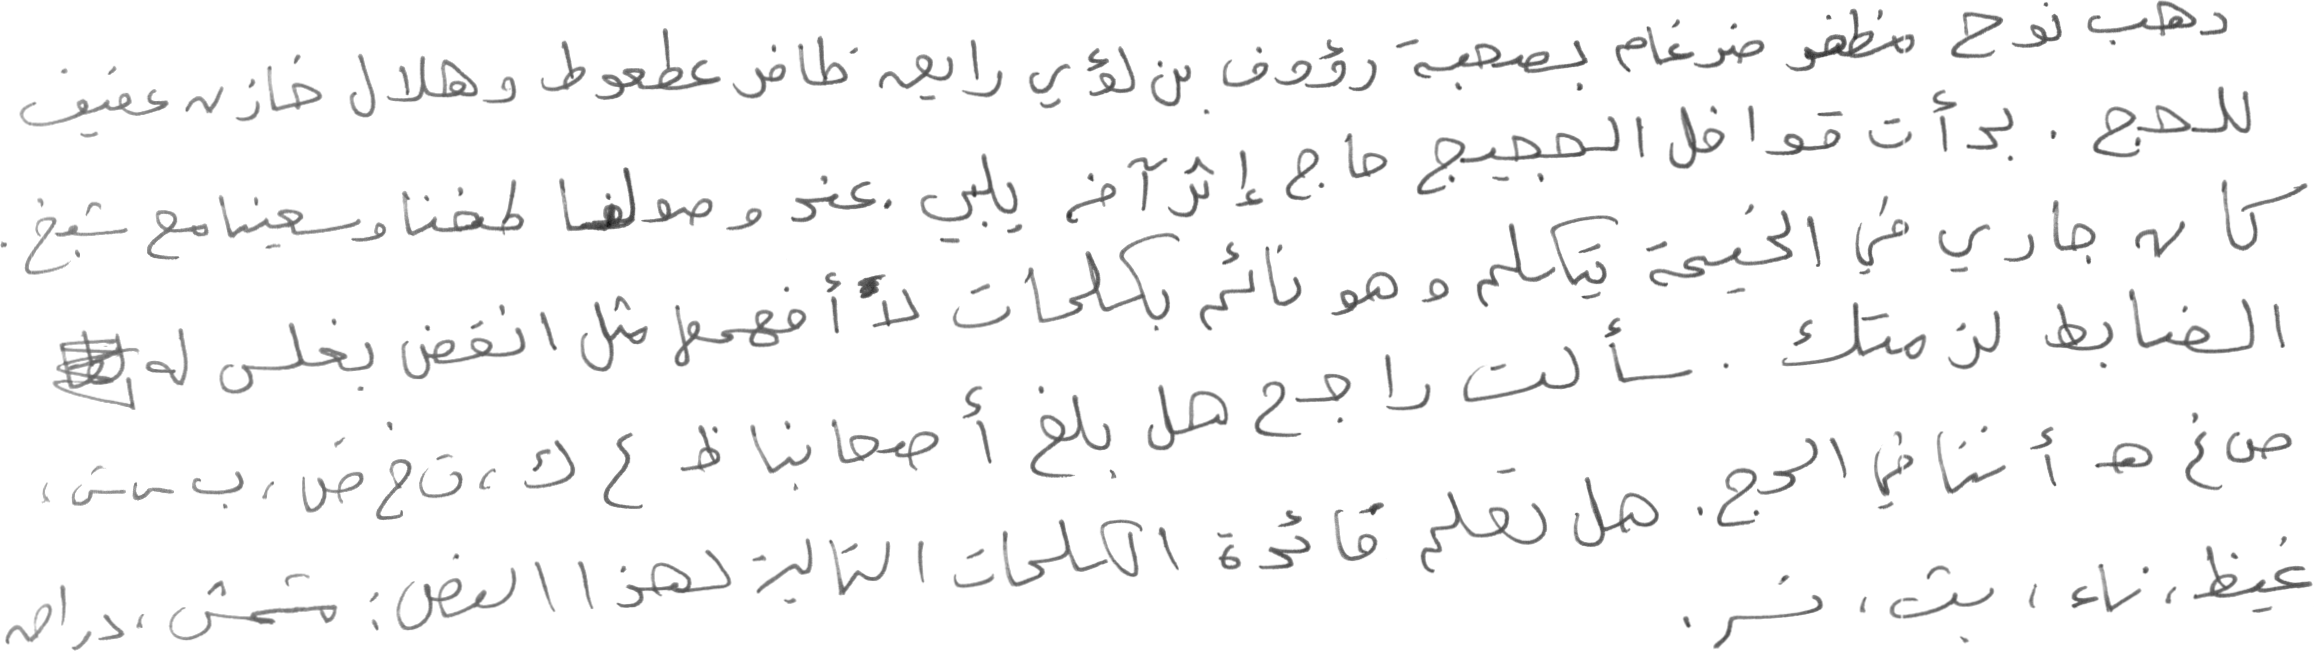 ذهب نوح مظفر ضرغام بصحبة رؤوف بن لؤي رايق ظافر عطعوط وهلال خازن عفيف
للحج . بدأت قوافل الحجيج حاج إثر آخر يلبي . عند وصولنا طفنا وسعينا مع شيخ .
كان جاري في الخيمة يتكلم وهو نائم بكلمات لا أفهمها مثل انقض بغلس له
الضابط لزمتك . سألت راجح هل بلغ أصحابنا ظ ع ك ، ت خ ض ، ب س ش ،
ص غ هـ أننا في الحج . هل تعلم فائدة الكلمات التالية لهذا النص : مشمش ، دراق
غيظ ، ناء ، بث ، نسر .